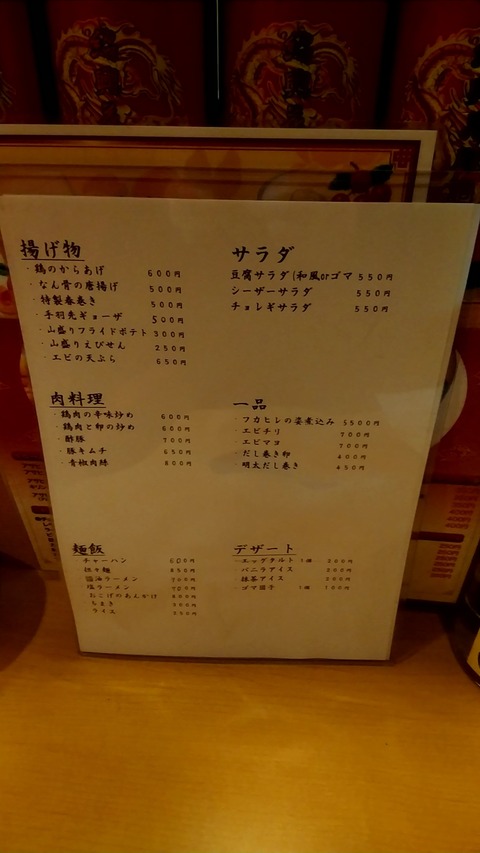 揚げ物
・鶏のからあげ 600円
・なん骨の唐揚げ 500円
・特製春巻き 500円
・手羽先ギョーザ 500円
・山盛りフライドポテト 300円
・山盛りえびせん 250円
・エビの天ぷら 650円
サラダ
豆腐サラダ(和風orゴマ 550円
シーザーサラダ 550円
チョレギサラダ 550円
肉料理
・鶏肉の辛味炒め 600円
・鶏肉と卵の炒め 600円
・酢豚 700円
・豚キムチ 650円
・青椒肉絲 800円
一品
・フカヒレの姿煮込み 5500円
・エビチリ 700円
・エビマヨ 700円
・だし巻き卵 400円
・明太だし巻き 450円
麺飯
・チャーハン 600円
・担々麺 850円
・醤油ラーメン 700円
・塩ラーメン 700円
・おこげのあんかけ 800円
・ちまき 300円
・ライス
デザート
・エッグタルト 1個
・バニラアイス 200円
・抹茶アイス 200円
・ゴマ団子 1個